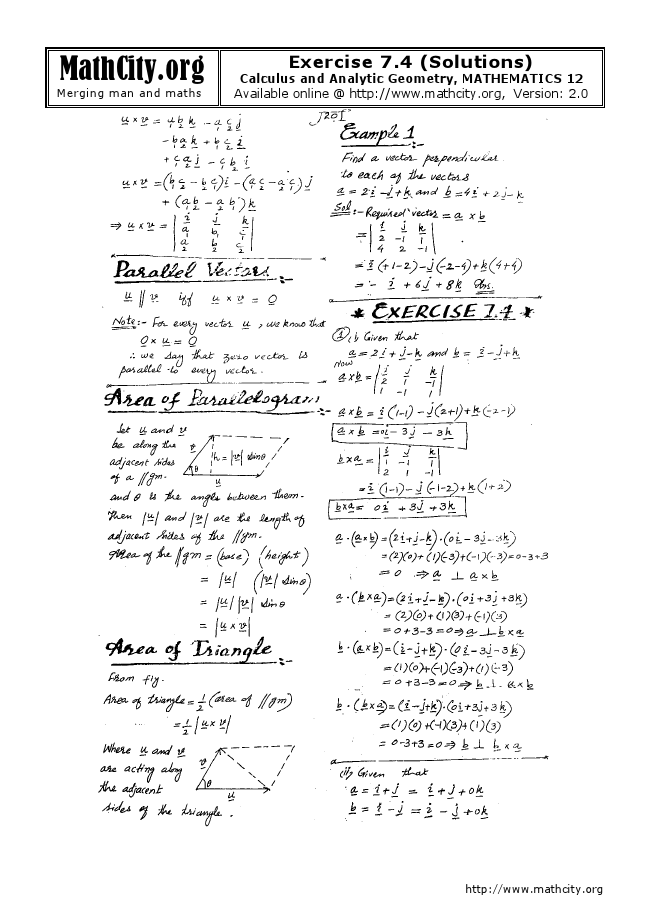 MathCity.org
Merging man and maths
Exercise 7.4 (Solutions)
Calculus and Analytic Geometry, MATHEMATICS 12
Available online @ http://www.mathcity.org, Version: 2.0
u × v = a₁b₂k − a₁c₂j
− b₁a₂k + b₁c₂i
+ c₁a₂j − c₁b₂i
u × v = (b₁c₂ − b₂c₁)i − (a₁c₂ − a₂c₁)j
+ (a₁b₂ − a₂b₁)k
⇒ u × v = | i j k |
| a₁ b₁ c₁ |
| a₂ b₂ c₂ |
Parallel Vectors :-
u ∥ v iff u × v = 0
Note:- For every vector u, we know that
0 × u = 0
∴ we say that zero vector is
parallel to every vector.
Area of Parallelogram :-
Let u and v
be along the
adjacent sides
of a //gm.
v h = |v| sinθ
θ
u
and θ is the angle between them.
Then |u| and |v| are the length of
adjacent sides of the //gm.
Area of the //gm = (base) (height)
= |u| (|v| sinθ)
= |u| |v| sinθ
= |u × v|
Area of Triangle :-
From fig.
Area of triangle = 1/2 (area of //gm)
= 1/2 |u × v|
Where u and v
are acting along
the adjacent
sides of the triangle.
v
θ
u
Example 1 :-
Find a vector perpendicular
to each of the vectors
a = 2i − j + k and b = 4i + 2j − k
Sol:- Required vector = a × b
= | i j k |
| 2 −1 1 |
| 4 2 −1 |
= i(+1−2) − j(−2−4) + k(4+4)
= − i + 6j + 8k Ans.
* EXERCISE 7.4 *
① (i) Given that
a = 2i + j − k and b = i − j + k
Now
a × b = | i j k |
| 2 1 −1 |
| 1 −1 1 |
a × b = i(1−1) − j(2+1) + k(−2−1)
a × b = 0i − 3j − 3k
b × a = | i j k |
| 1 −1 1 |
| 2 1 −1 |
= i(1−1) − j(−1−2) + k(1+2)
b × a = 0i + 3j + 3k
a · (a × b) = (2i + j − k) · (0i − 3j − 3k)
= (2)(0) + (1)(−3) + (−1)(−3) = 0−3+3
= 0 ⇒ a ⊥ a × b
a · (b × a) = (2i + j − k) · (0i + 3j + 3k)
= (2)(0) + (1)(3) + (−1)(3)
= 0+3−3 = 0 ⇒ a ⊥ b × a
b · (a × b) = (i − j + k) · (0i − 3j − 3k)
= (1)(0) + (−1)(−3) + (1)(−3)
= 0+3−3 = 0 ⇒ b ⊥ a × b
b · (b × a) = (i − j + k) · (0i + 3j + 3k)
= (1)(0) + (−1)(3) + (1)(3)
= 0−3+3 = 0 ⇒ b ⊥ b × a
(ii) Given that
a = i + j = i + j + 0k
b = i − j = i − j + 0k
http://www.mathcity.org